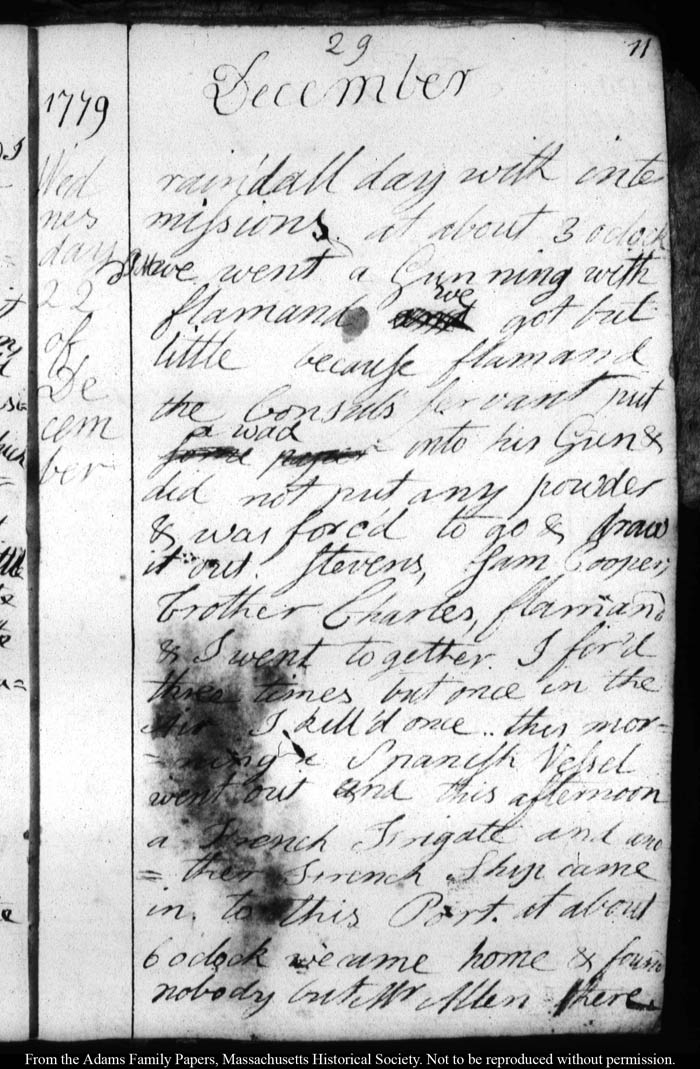 29
11
December
1779
Wed
nes
day
22
of
De
cem
ber
rain'd all day with inte
missions. at about 3 oclock
we went a Gunning with
flamand we got but
little because flamand
the Consuls servant put
a wad into his Gun &
did not put any powder
& was forc'd to go & draw
it out. Stevens, Sam Cooper,
brother Charles, flamand
& I went together. I fir'd
three times but once in the
Air I kill'd once.. this mor=
=ning a Spanish Vessel
went out and this afternoon
a French Frigate and ano
=ther French Ship came
in. to this Port. at about
6 oclock we came home & found
nobody but Mr Allen there.
From the Adams Family Papers, Massachusetts Historical Society. Not to be reproduced without permission.